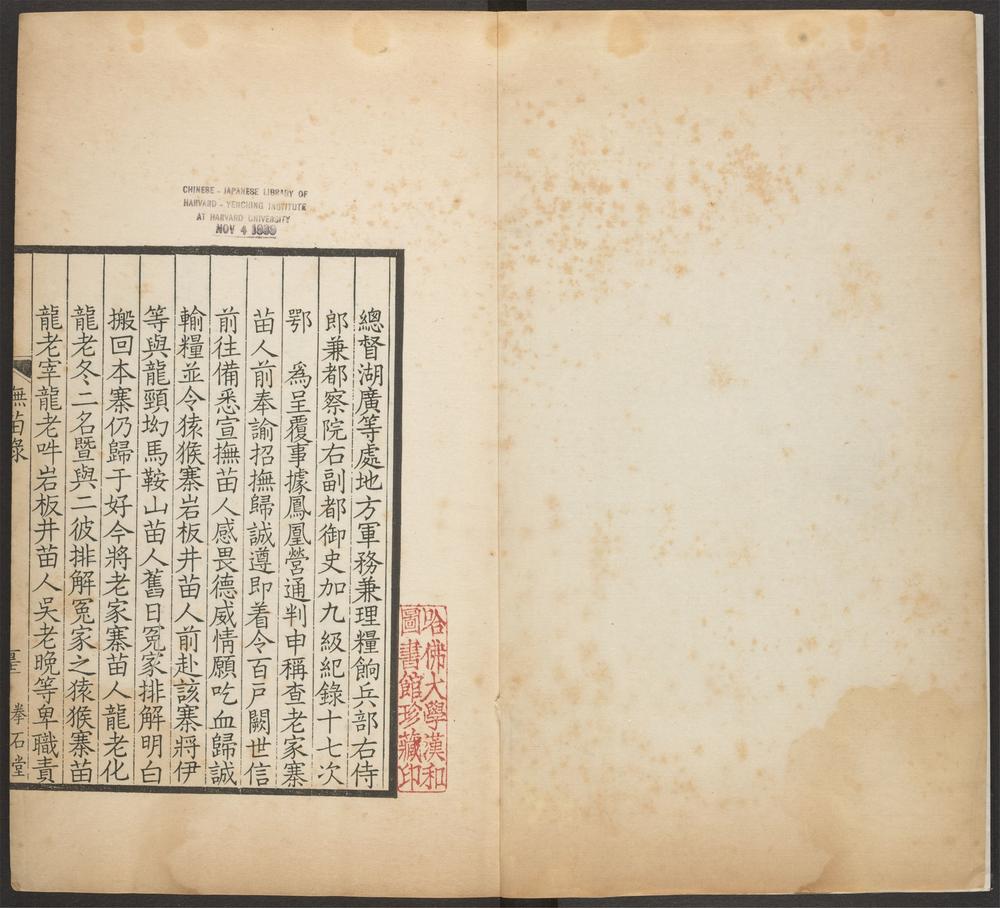 CHINESE - JAPANESE LIBRARY OF
HARVARD - YENCHING INSTITUTE
AT HARVARD UNIVERSITY
NOV 4 1939
總督湖廣等處地方軍務兼理糧餉兵部右侍
郎兼都察院右副都御史加九級紀錄十七次
鄂　為呈覆事據鳳凰營通判申稱查老家寨
苗人前奉諭招撫歸誠遵即着令百戶闕世信
前往備悉宣撫苗人感畏德威情願吃血歸誠
輸糧並令猿猴寨岩板井苗人前赴該寨將伊
等與龍頸坳馬鞍山苗人舊日冤家排解明白
搬回本寨仍歸于好今將老家寨苗人龍老化
龍老冬二名暨與二彼排解冤家之猿猴寨苗
龍老宰龍老吽岩板井苗人吳老晚等卑職責
撫苗錄
拳石堂
哈佛大學漢和
圖書館珍藏印